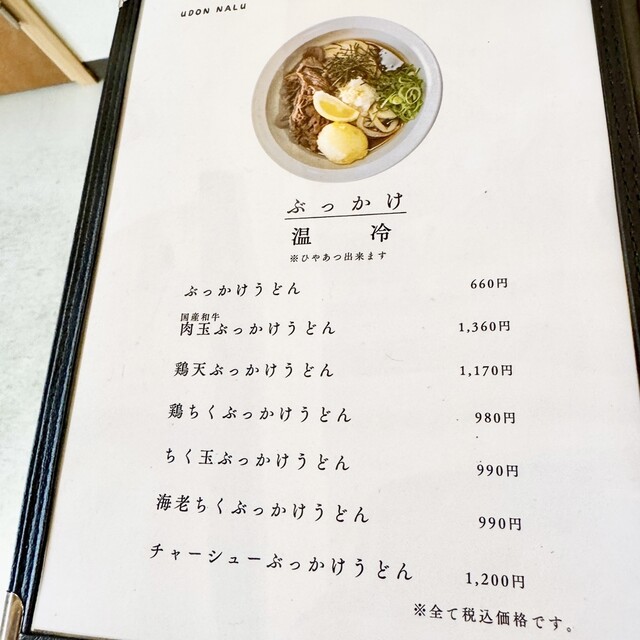 UDON NALU
ぶっかけ
温 冷
※ひやあつ出来ます
ぶっかけうどん 660円
国産和牛
肉玉ぶっかけうどん 1,360円
鶏天ぶっかけうどん 1,170円
鶏ちくぶっかけうどん 980円
ちく玉ぶっかけうどん 990円
海老ちくぶっかけうどん 990円
チャーシューぶっかけうどん 1,200円
※全て税込価格です。